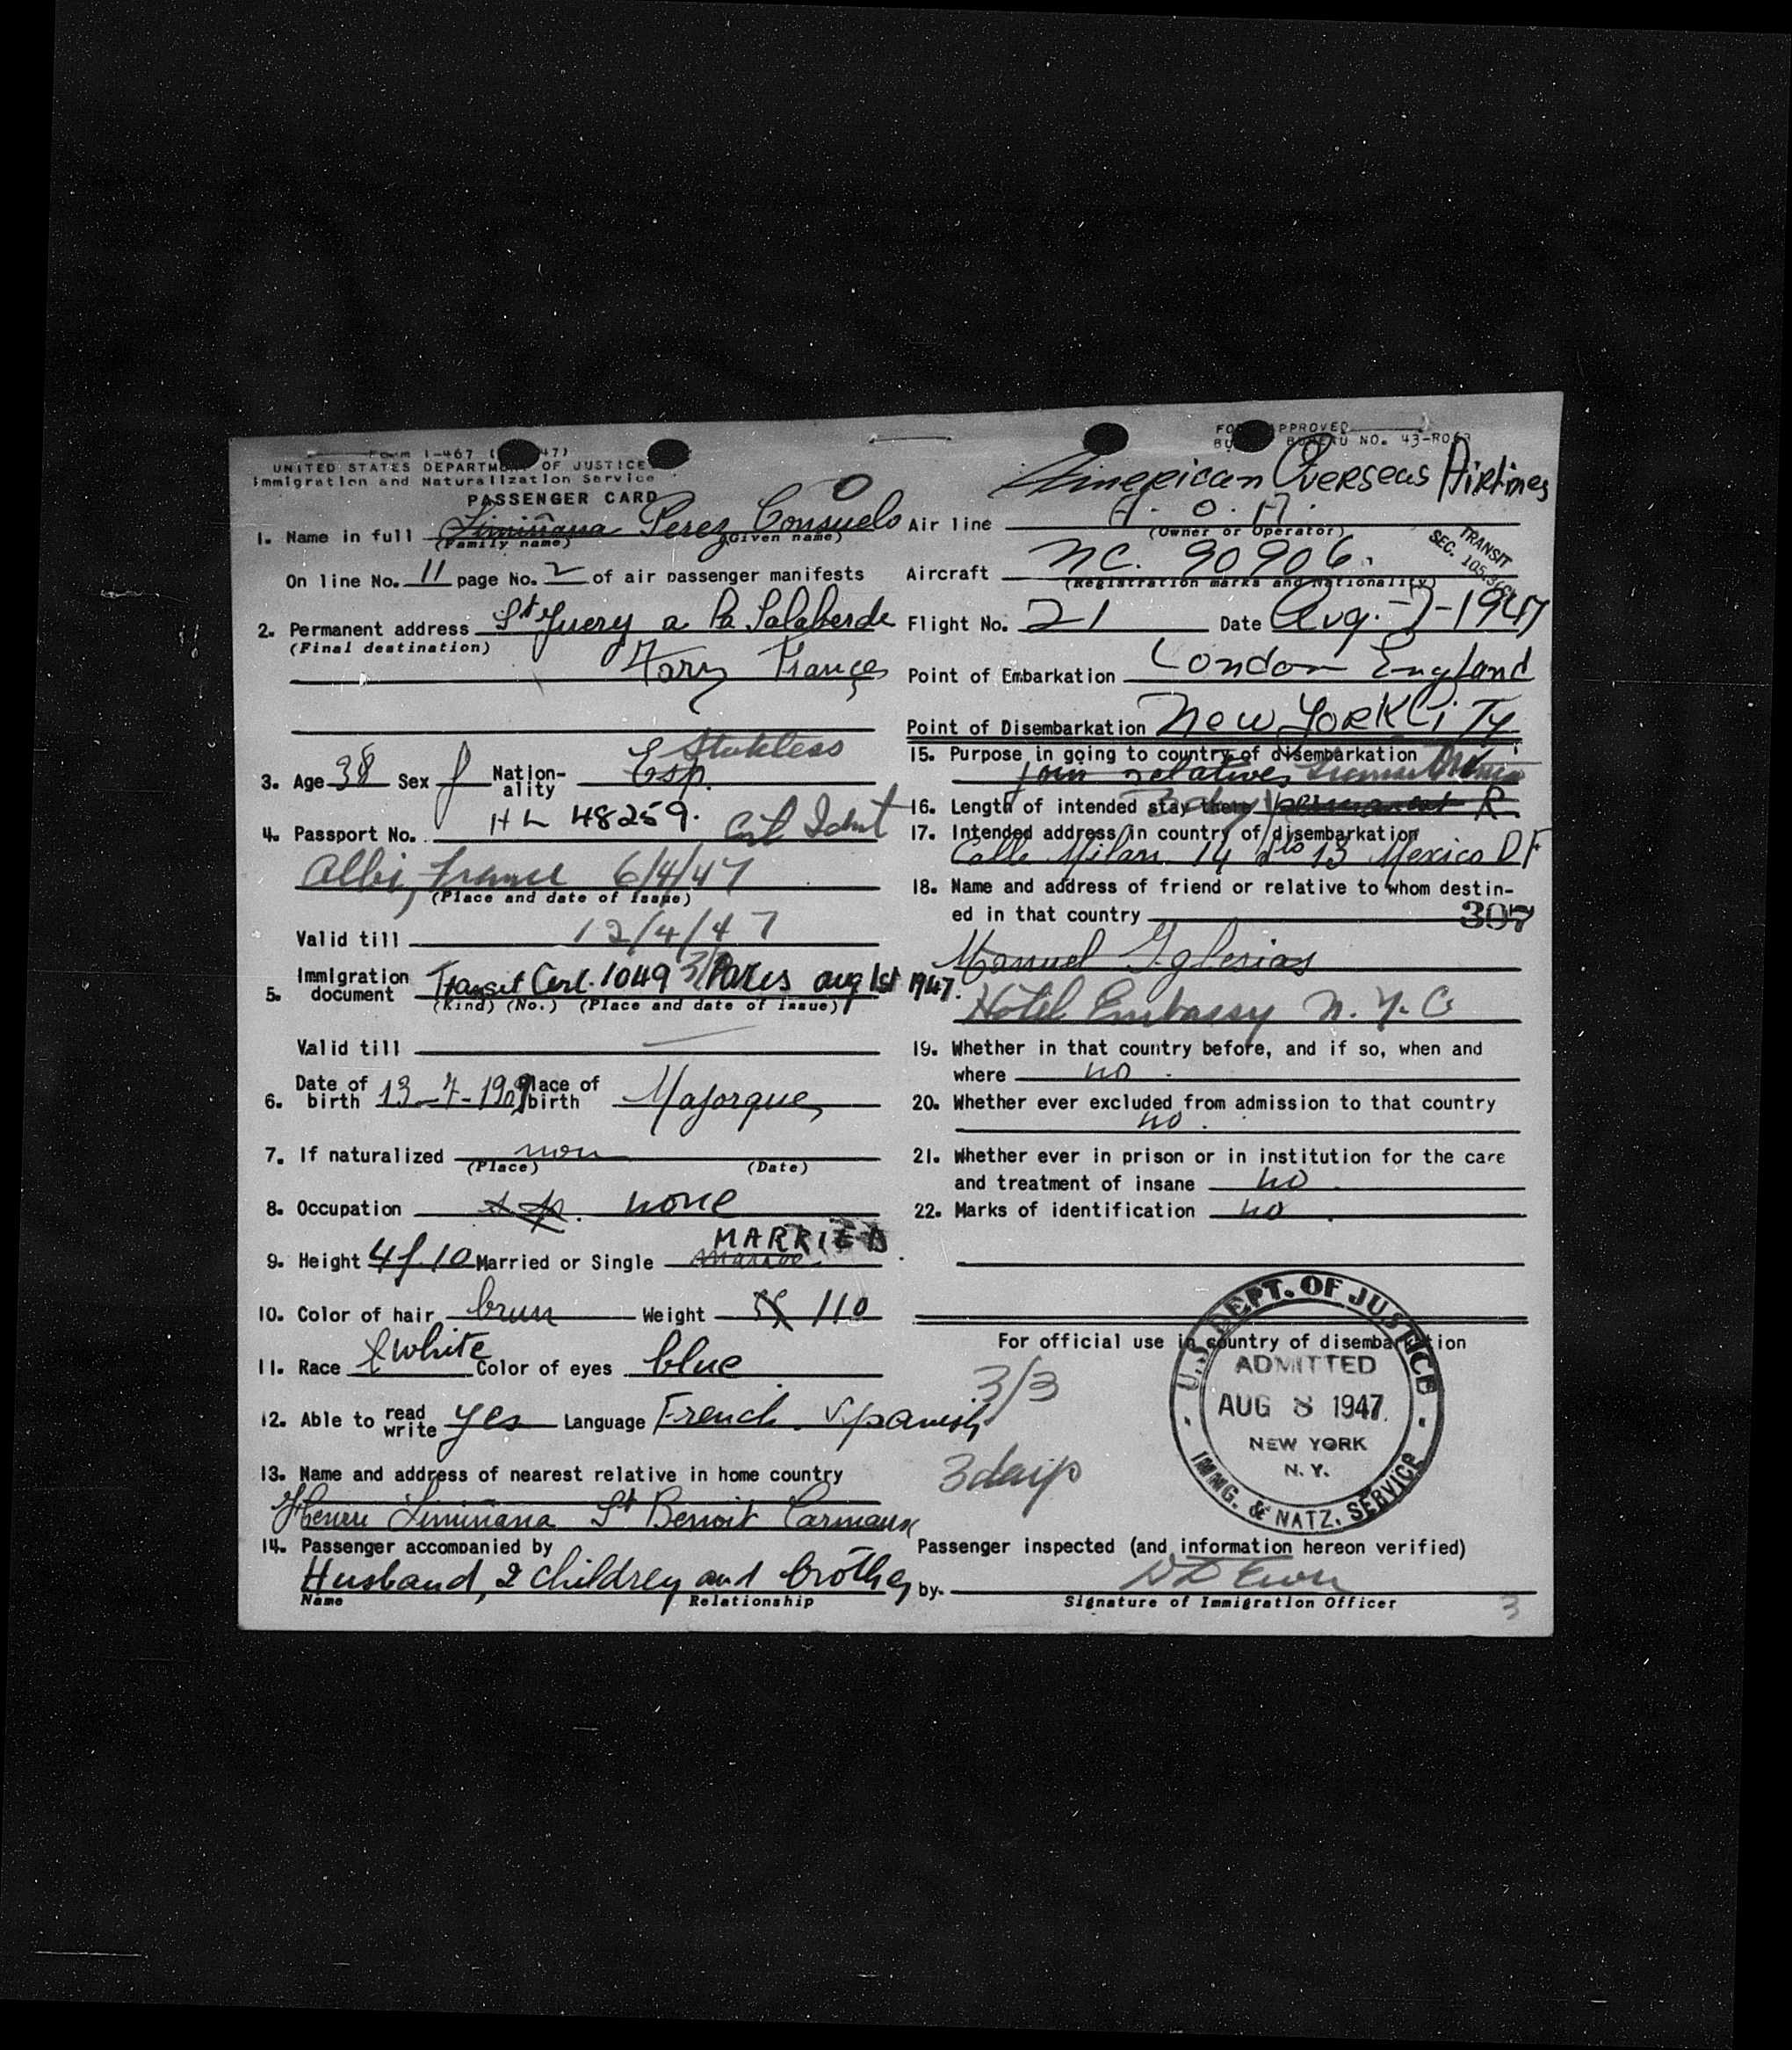 Form I-467 ( 47)
UNITED STATES DEPARTMENT OF JUSTICE
Immigration and Naturalization Service
PASSENGER CARD
1. Name in full Limiñana Perez Consuelo
(Family name) (Given name)
On line No. 11 page No. 2 of air passenger manifests
2. Permanent address St Juery a La
(Final destination)
Tarn France
3. Age 38 Sex f Nationality Esp. Stateless
4. Passport No. HL 48259. Cert Ident
Albi, France 6/4/47
(Place and date of issue)
Valid till 12/4/47
5. Immigration document Transit Cert. 1049 Paris aug 1st 1947.
(Kind) (No.) (Place and date of issue)
Valid till —
6. Date of birth 13-7-1909 Place of birth Majorque
7. If naturalized non
(Place) (Date)
8. Occupation none
9. Height 4f.10 Married or Single MARRIED
10. Color of hair brun Weight 110
11. Race white Color of eyes blue
12. Able to read write yes Language French. Spanish
13. Name and address of nearest relative in home country
Henri Limiñana St Benoit Carmaux
14. Passenger accompanied by
Husband, 2 children and brother
Name Relationship
FORM APPROVED
BUDGET BUREAU NO. 43-R063
American Overseas Airlines
Air line A. O. A.
(Owner or Operator)
TRANSIT
SEC. 105.3
Aircraft NC. 90906.
(Registration marks and Nationality)
Flight No. 21 Date Aug.-7-1947
Point of Embarkation London England
Point of Disembarkation New York City
15. Purpose in going to country of disembarkation
join relatives
16. Length of intended stay there 3 days permanent R.
17. Intended address in country of disembarkation
Calle Milan 14 dto 13 Mexico D F
18. Name and address of friend or relative to whom destin-
ed in that country
307
Manuel Iglesias
Hotel Embassy N.Y.C
19. Whether in that country before, and if so, when and
where no.
20. Whether ever excluded from admission to that country
no.
21. Whether ever in prison or in institution for the care
and treatment of insane no.
22. Marks of identification no.
For official use in country of disembarkation
3/3
3 days
U.S. DEPT. OF JUSTICE
ADMITTED
AUG 8 1947
NEW YORK
N. Y.
IMMG. & NATZ. SERVICE
Passenger inspected (and information hereon verified)
by
Signature of Immigration Officer
3